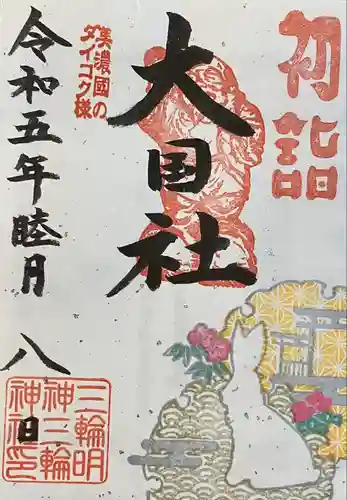 初詣
大国社
美濃國の
ダイコク様
令和五年睦月八日
三輪明
神三輪
神社印